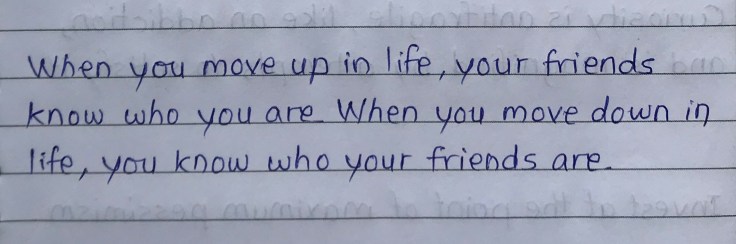 When you move up in life, your friends
know who you are. When you move down in
life, you know who your friends are.